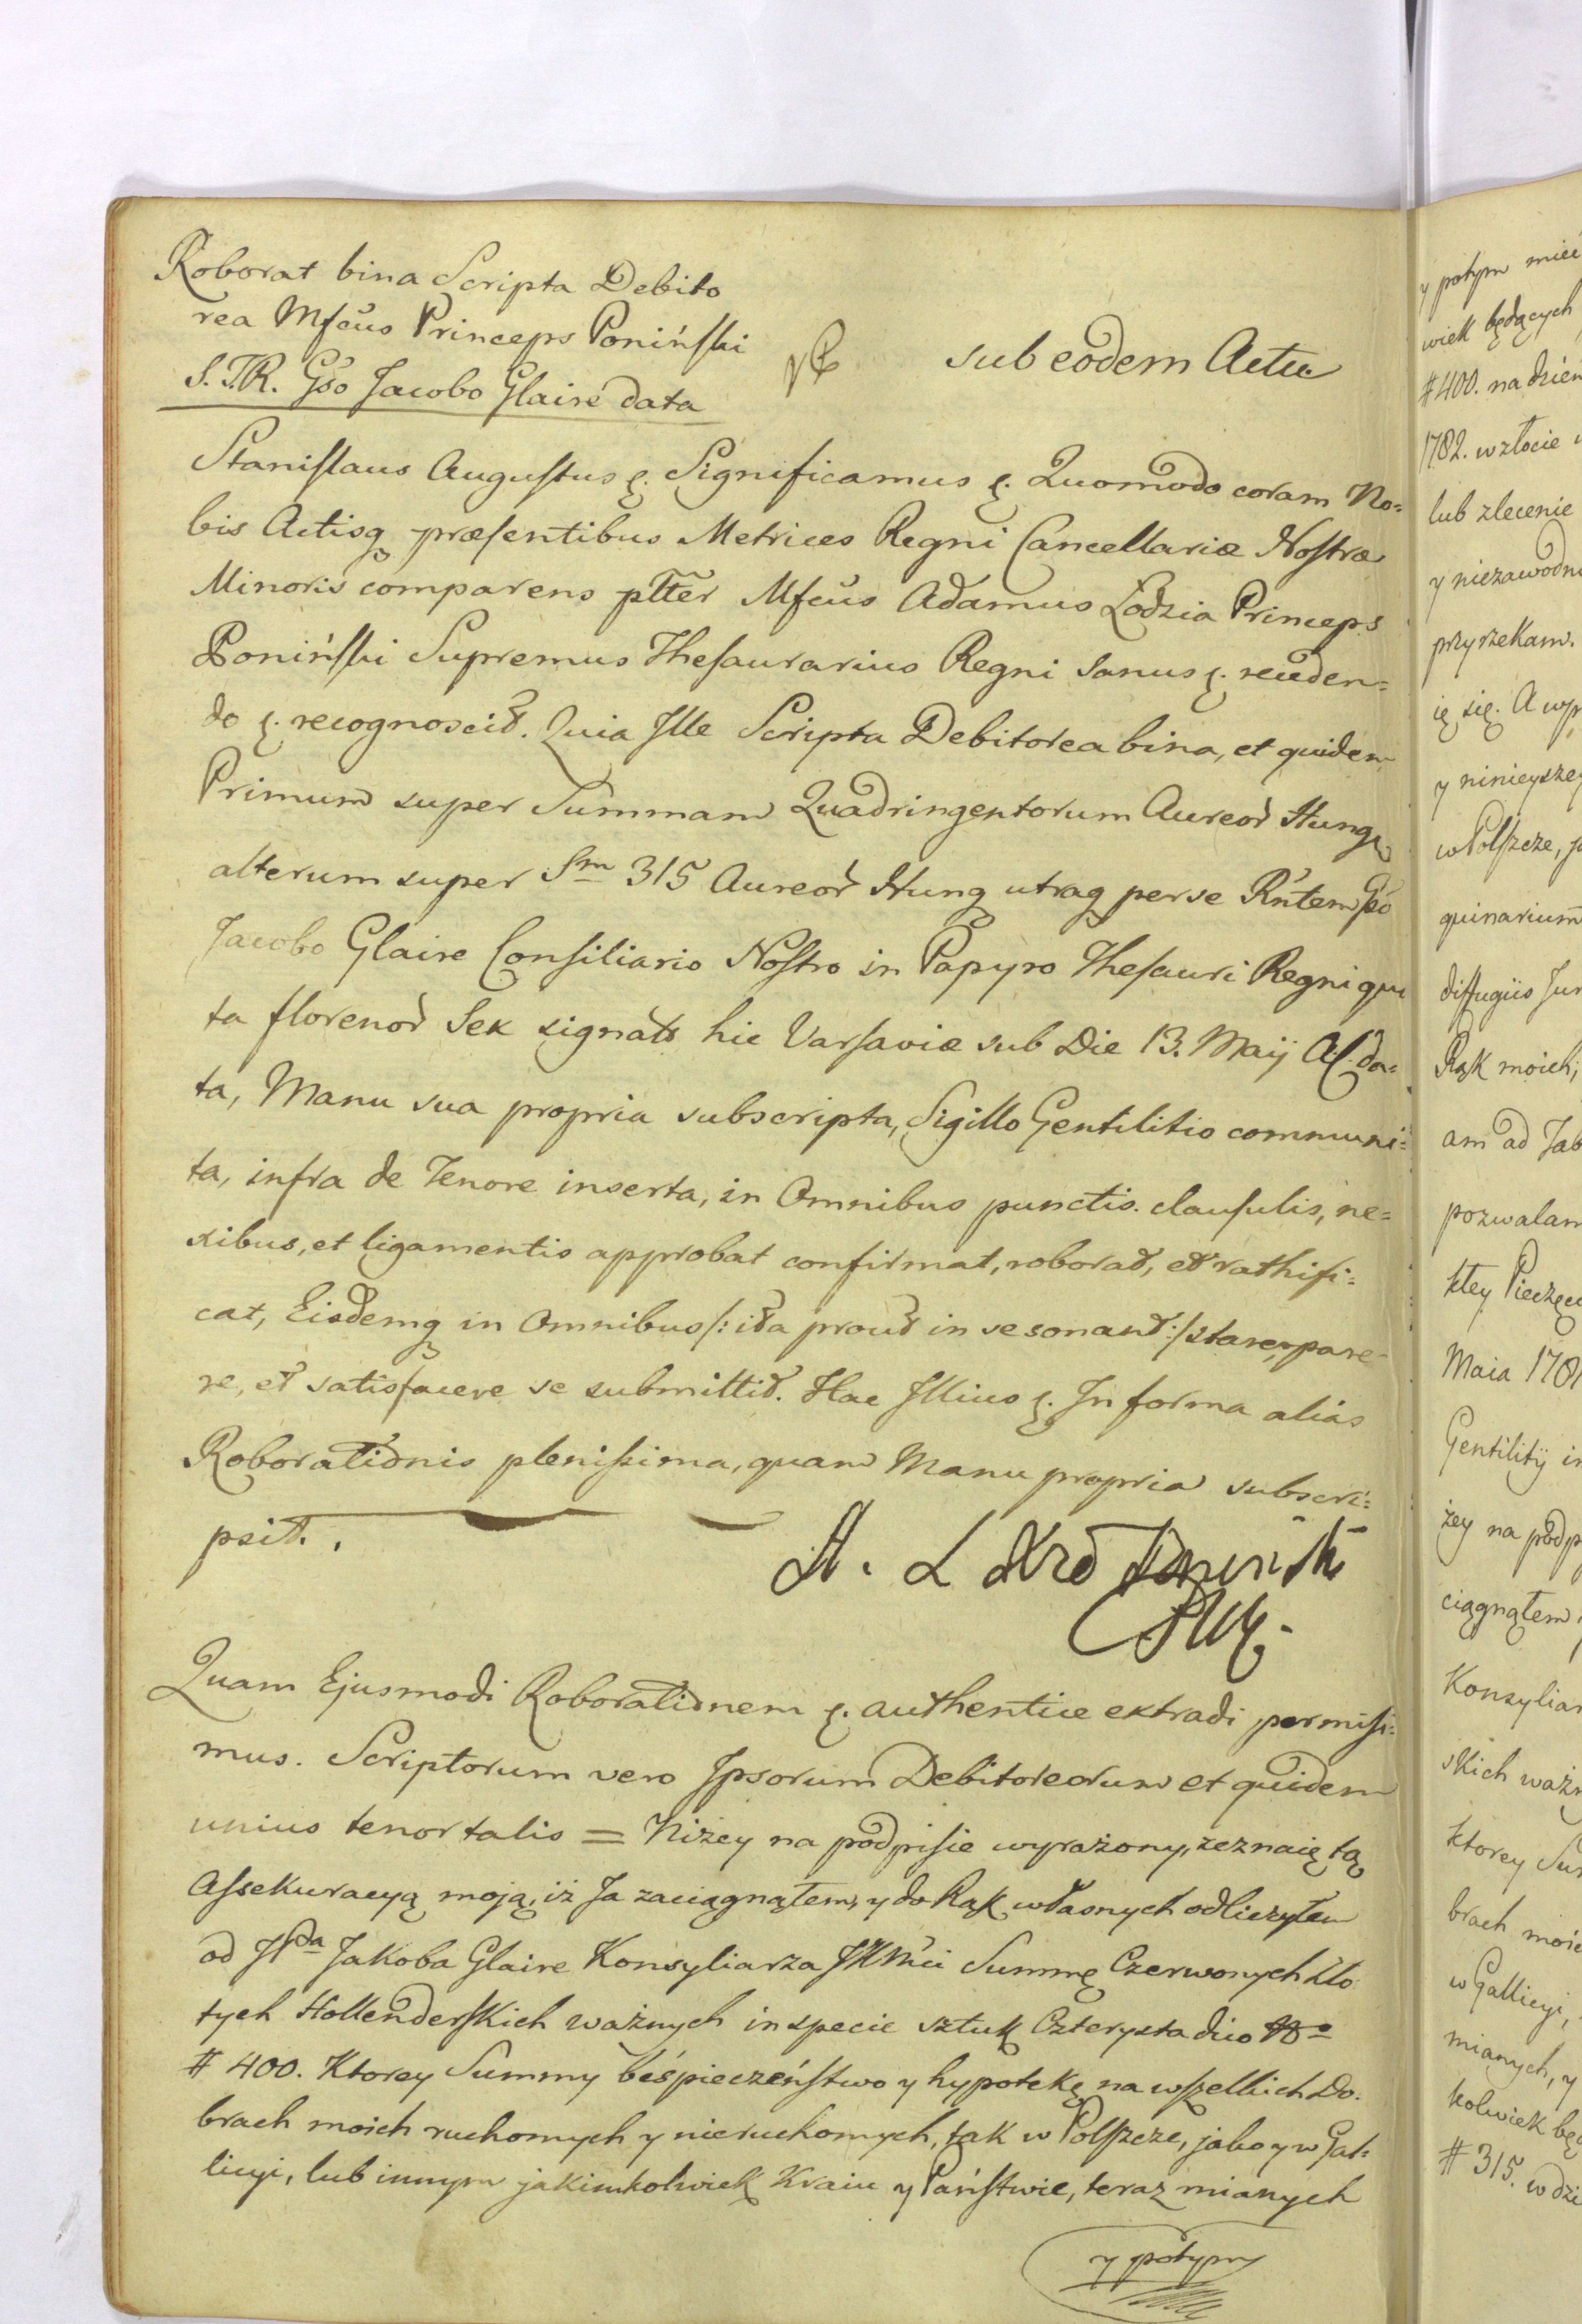 Roborat bina Scripta Debito
rea Mfcus Princeps Poniński
S.T.R. Gso Jacobo Glairé data
sub eodem Actu
Stanislaus Augustus ę. Significamus ę. Quomodo coram No=
bis Actisq præsentibus Metrices Regni Cancellariæ Nostræ
Minoris comparens plter Mfcus Adamus Łodzia Princeps
Poniński Supremus Thesaurarius Regni sanus ę. reced en=
do ę. recognoscit. Quia Ille Scripta Debitorea bina, et quidem
Primum super Summam Quadringentorum Aureor Hung
alterum super Sm 315 Aureor Hung utraq per se Rntem Gso
Jacobo Glaire Consiliario Nostro in Papyro Thesauri Regni qui
ta florenor Sex signats hic Varsaviæ sub Die 13. Maij A C. da=
ta, Manu sua propria subscripta, Sigillo Gentilitio communi=
ta, infra de Tenore inserta, in Omnibus punctis. clausulis, ne=
xibus, et ligamentis approbat confirmat, roborat, et rathifi=
cat, Eisdemq in Omnibus /: ita prout in se sonant :/ stare, pare=
re, et satisfacere se submittit. Hac Illius ę. In forma alias
Roborationis plenissima, quam Manu propria subscri=
psit.
A. Ł Xże Poniński
Quam Ejusmodi Roborationem ę. authentice extradi permisi=
mus. Scriptorum vero Ipsorum Debitoreorum et quidem
unius tenor talis = Niżey na podpisie wyrażony, zeznaię tą
Assekuracyą moją, iż Ja zaciągnąłem, y do Rąk własnych odliczyłem
od JPda Jakoba Glaire Konsyliarza JKMci Summę Czerwonych Zło
tych Hollenderskich ważnych in specie sztuk Czterysta dico No
# 400. Ktorey Summy beśpieczeństwo y hypotekę na wszelkich Do.
brach moich ruchomych y nieruchomych, tak w Polszcze, jako y w Gal=
licyi, lub innym jakimkolwiek Kraiu y Państwie, teraz mianych
y potym
y potym mieć
wiek będących
# 400. na dzień
1782. w złocie
lub zlecenie
y niezawodn
przyrzekam.
ię się. A
y ninieyszey
w Polszcze,
quinarium
diffugiis Jur
Rąk moich,
am ad
pozwalam
ktey Pieczęci
Maia 178
Gentilitij
żey na podp
ciągnąłem
Konsyliar
skich ważn
ktorey Sum
brach moic
w Gallicyi,
mianych, y
kolwiek bę
# 315. w dzi